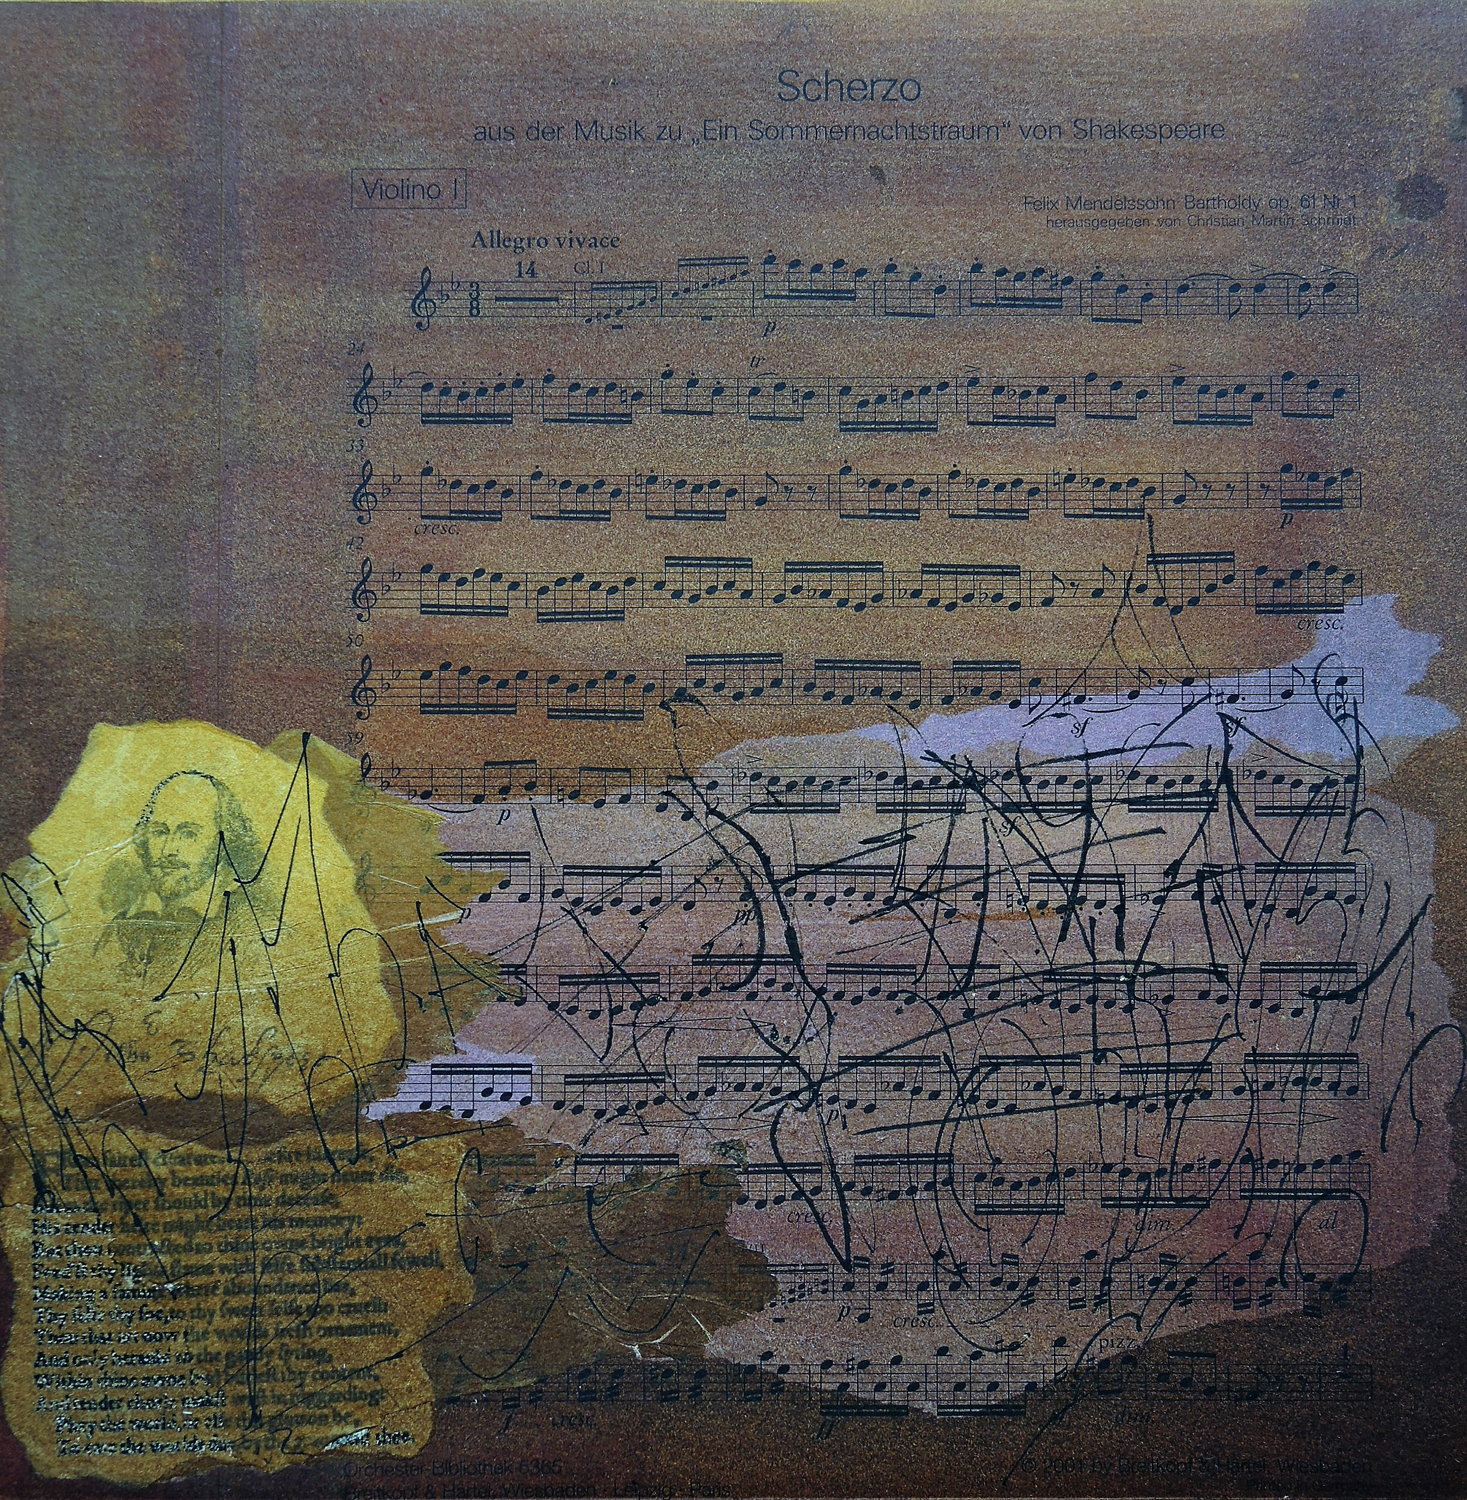 Scherzo
aus der Musik zu „Ein Sommernachtstraum“ von Shakespeare
Violino I
Felix Mendelssohn Bartholdy op. 61 Nr. 1
herausgegeben von Christian Martin Schmidt
Allegro vivace
14 Cl. I
3
8
p
24
tr
33
cresc.
p
42
cresc.
50
sf sf
59
p sf
p pp
p
cresc. dim. al
p cresc.
pizz. 1
f cresc. ff dim.
fairest
beauties might never die,
should by time decease,
His tender heire might beare his memory:
But thou contracted to thine owne bright eyes,
flame with selfe substantiall fewell,
Making a famine where aboundance lies,
Thy selfe thy foe, to thy sweet selfe too cruell:
Thou that art now the worlds fresh ornament,
And only herauld to the gaudy spring,
Within thine owne content,
And tender chorle makst wast in niggarding:
Pitty the world, or else this glutton be,
To eate the worlds due, by the and thee.
Orchester-Bibliothek 5365
Breitkopf & Härtel, Wiesbaden · Leipzig · Paris
© 2001 by Breitkopf & Härtel, Wiesbaden